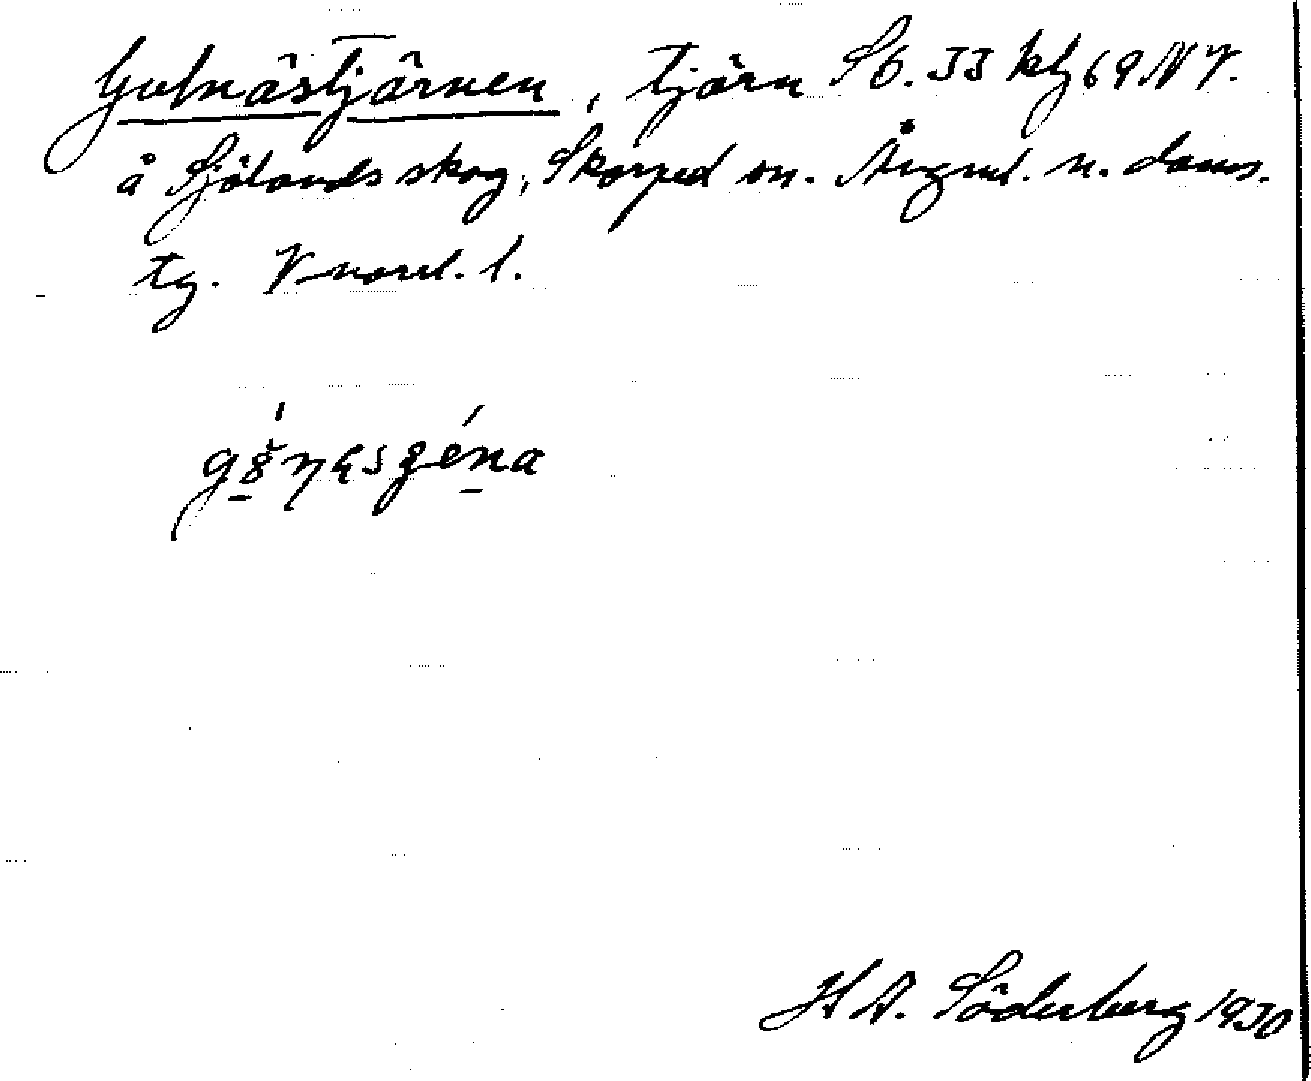 Gulnästjärnen, tjärn Sb. JJ blf 69 NV.
å Sjölands skog, Skorped sn. Ångml. n. doms.
tg. V-norrl. l.
H A. Söderberg 1930